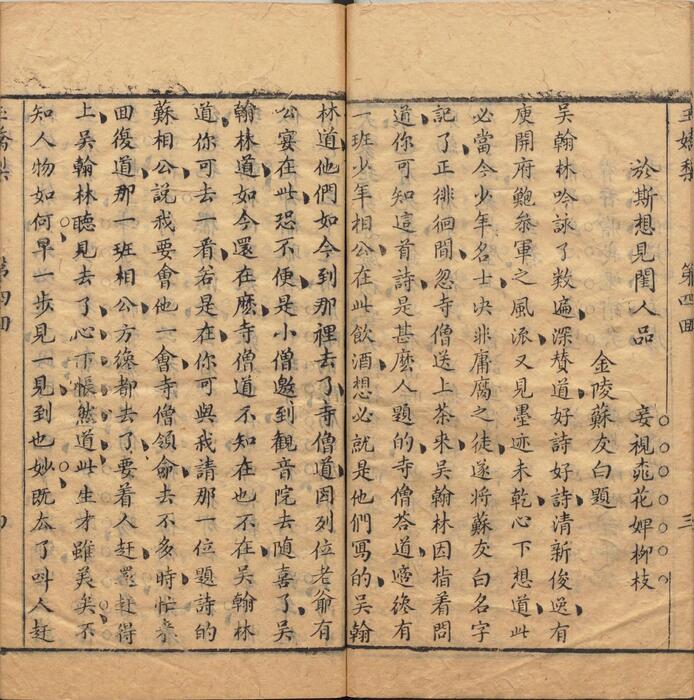 玉嬌梨
第四囬
三
於斯想見閨人品 妾視桃花婢柳枝
金陵蘇友白題
吳翰林吟詠了数遍深賛道好詩好詩清新俊逸有
庾開府鮑叅軍之風派又見墨迹未乾心下想道此
必當今少年名士决非庸腐之徒遂將蘇友白名字
記了正徘徊間忽寺僧送上茶來吳翰林因指着問
道你可知這首詩是甚麽人題的寺僧答道適纔有
一班少年相公在此飲酒想必就是他們寫的吳翰
林道他們如今到那裡去了寺僧道因列位老爺有
公宴在此恐不便是小僧邀到觀音院去随喜了吳
翰林道如今還在麽寺僧道不知在也不在吳翰林
道你可去一看若是在你可與我請那一位題詩的
蘇相公說我要會他一會寺僧領命去不多時忙來
囬復道那一班相公方纔都去了要着人赶還赶得
上吳翰林聽見去了心下悵然道此生才雖美矣不
知人物如何早一步見一見到也妙既去了呌人赶
玉嬌梨
第四囬